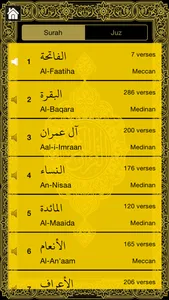 Surah Juz
1 الفاتحة 7 verses
Al-Faatiha Meccan
2 البقرة 286 verses
Al-Baqara Medinan
3 آل عمران 200 verses
Aal-i-Imraan Medinan
4 النساء 176 verses
An-Nisaa Medinan
5 المائدة 120 verses
Al-Maaida Medinan
6 الأنعام 165 verses
Al-An'aam Meccan
7 الأعراف 206 verses